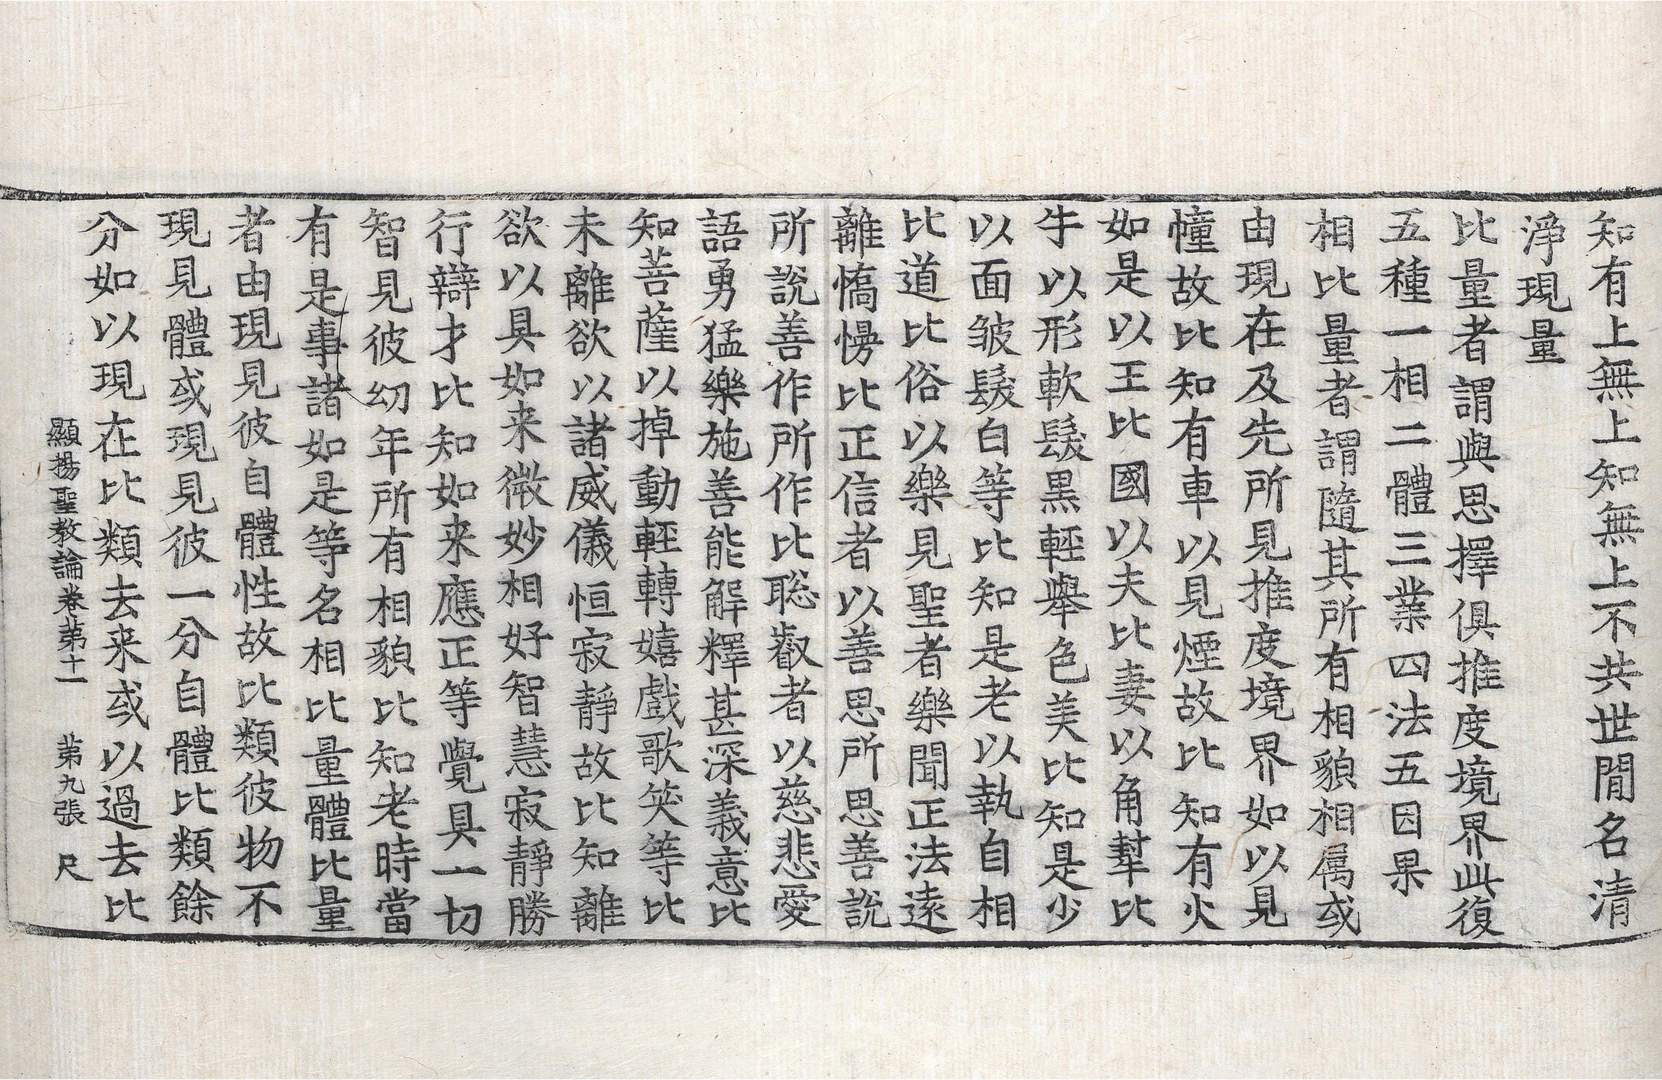 知有上無上知無上不共世間名清
淨現量
比量者謂與思擇俱推度境界此復
五種一相二體三業四法五因果
相比量者謂隨其所有相貌相属或
由現在及先所見推度境界如以見
幢故比知有車以見煙故比知有火
如是以王比國以夫比妻以角犎比
牛以形軟髮黒輕舉色美比知是少
以面皱髮白等比知是老以執自相
比道比俗以樂見聖者樂聞正法遠
離慳慢比正信者以善思所思善説
所說善作所作比聡叡者以慈悲愛
語勇猛樂施善能解釋甚深義意比
知菩薩以掉動輕轉嬉戲歌笑等比
未離欲以諸威儀恒寂靜故比知離
欲以具如来微妙相好智慧寂靜勝
行辯才比知如来應正等覺具一切
智見彼幼年所有相貌比知老時當
有是事諸如是等名相比量體比量
者由現見彼自體性故比類彼物不
現見體或現見彼一分自體比類餘
分如以現在比類去来或以過去比
顯揚聖教論卷第十一 第九張 尺